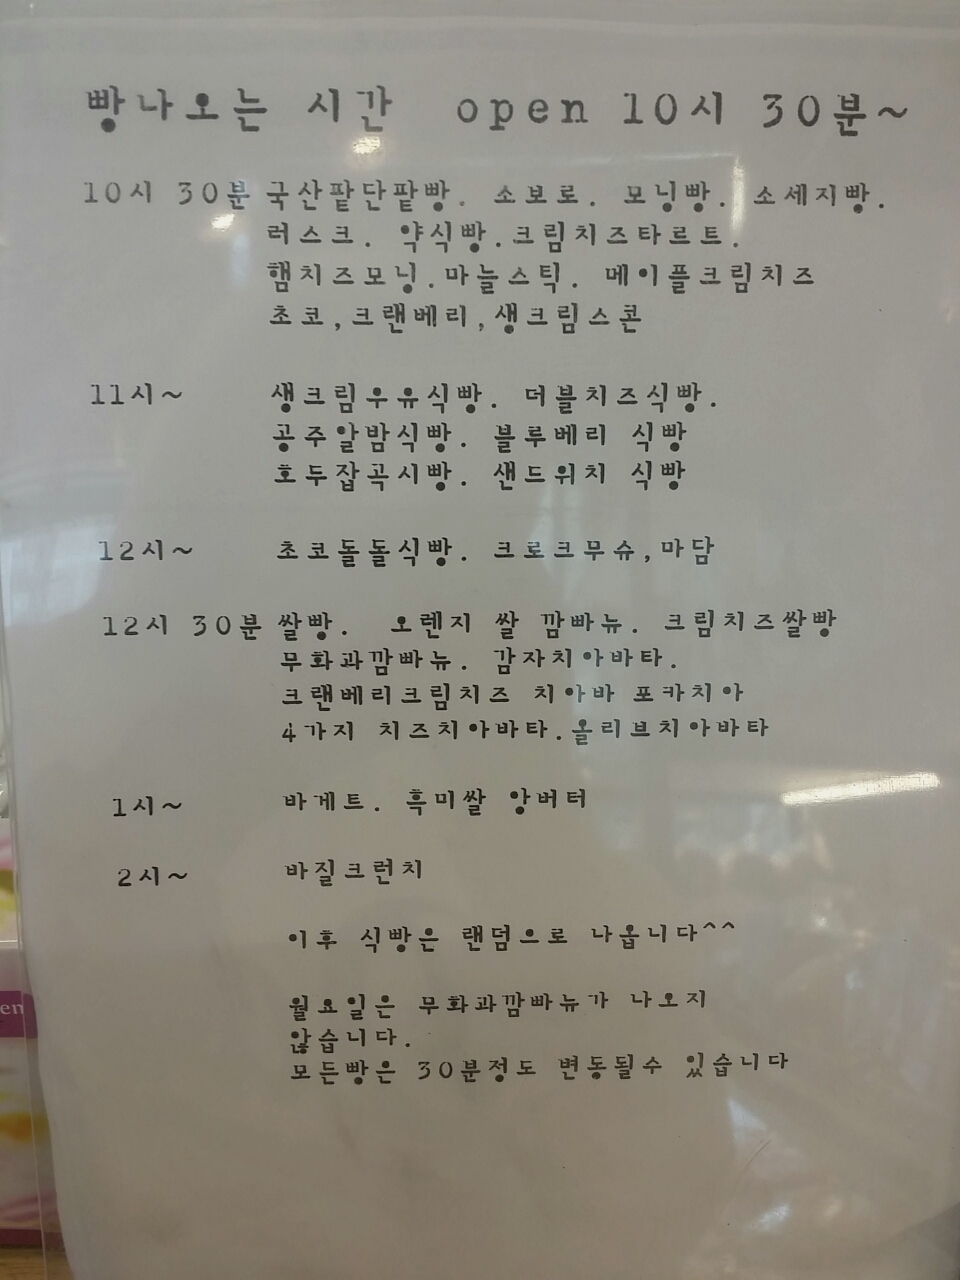 빵나오는 시간 open 10시 30분~
10시 30분 국산팥단팥빵. 소보로. 모닝빵. 소세지빵.
러스크. 약식빵.크림치즈타르트.
햄치즈모닝.마늘스틱. 메이플크림치즈
초코,크랜베리,생크림스콘
11시~ 생크림우유식빵. 더블치즈식빵.
공주알밤식빵. 블루베리 식빵
호두잡곡시빵. 샌드위치 식빵
12시~ 초코돌돌식빵. 크로크무슈,마담
12시 30분 쌀빵. 오렌지 쌀 깜빠뉴. 크림치즈쌀빵
무화과깜빠뉴. 감자치아바타.
크랜베리크림치즈 치아바 포카치아
4가지 치즈치아바타.올리브치아바타
1시~ 바게트. 흑미쌀 앙버터
2시~ 바질크런치
이후 식빵은 랜덤으로 나옵니다^^
월요일은 무화과깜빠뉴가 나오지
않습니다.
모든빵은 30분정도 변동될수 있습니다
en